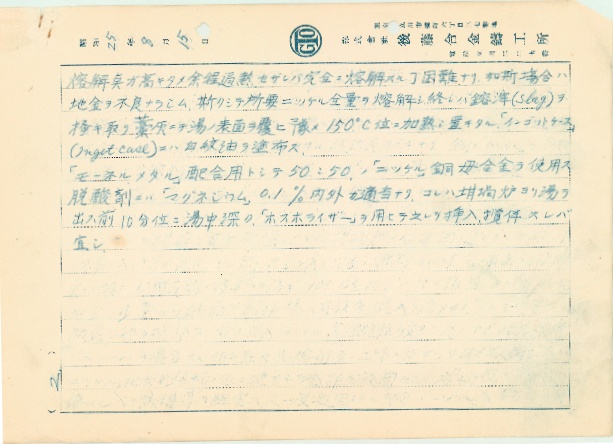 昭和25年8月15日
株式会社 後藤合金鋳工所
熔解臭方高キタメ余程過熱セザレバ完全ニ熔解スル丁困難ナリ、如斯場合ハ
地金ヲ不良ナラシム、斯クシテ所要ニッケル全量ヲ熔解シ終レバ鎔滓(slag)ヲ
掻キ取リ藁灰ニテ湯ノ表面ヲ覆ヒ 150°C位ニ加熱シ置キタル「インゴットケース」
(inget case)ニハ 油ヲ塗布ス.
「モーネルメタル」配合用トシテ50:50ノ「ニッケル」銅母合金ヲ使用ス
脱酸剤ニハ「マグネシウム」0.1%内外ヲ適当ナリ、コレハ坩堝炉ヨリ湯ヲ
出ス前10分位ニ湯中深ク「ホスホライザー」ヲ用ヒテ之レヲ挿入、攪 スレバ
宜シ、